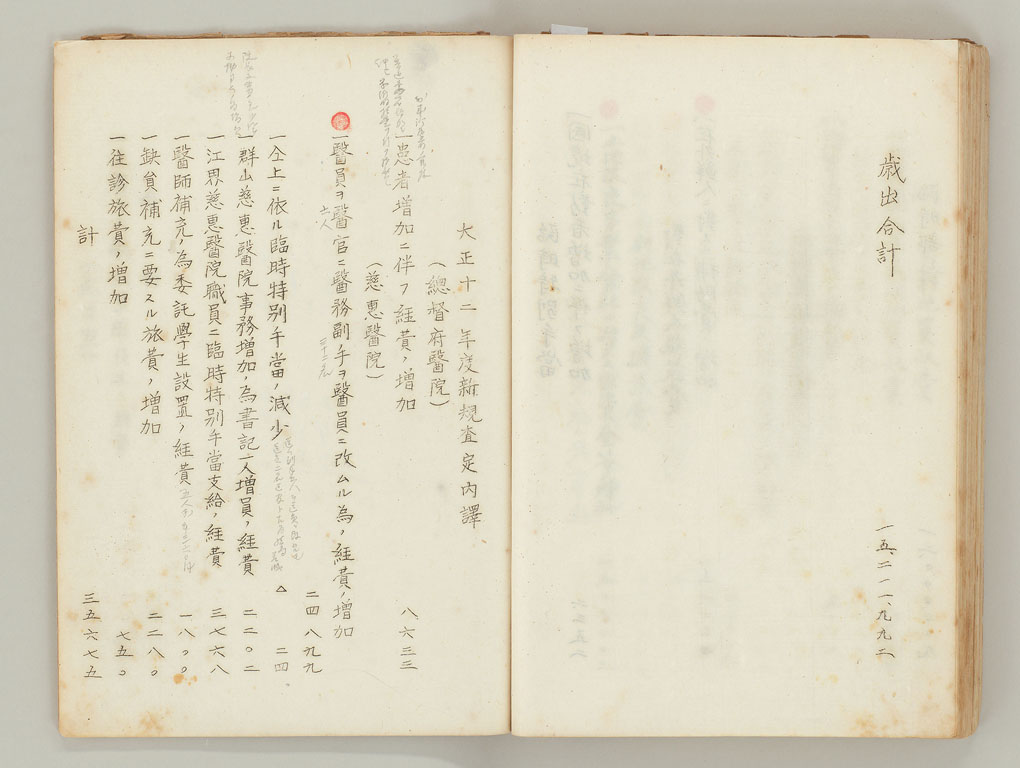 歳出合計 一五、二一一、九九二
大正十二年度新規査定内譯
(總督府醫院)
一患者増加ニ伴フ経費ノ増加 八、六三三
(慈惠醫院)
一醫員ヲ醫官ニ醫務副手ヲ醫員ニ改ムル為ノ経費ノ増加 二四八九九
六人
三十二人
一仝上ニ依ル臨時特別手當ノ減少 △ 二四
一群山慈惠醫院事務増加ノ為書記一人増員ノ経費 二二〇二
一江界慈惠醫院職員ニ臨時特別手當支給ノ経費 三七六八
一醫師補充ノ為委託學生設置ノ経費 一八〇〇
一缺員補充ニ要スル旅費ノ増加 二二八〇
一往診旅費ノ増加 七五〇
計 三五六七五